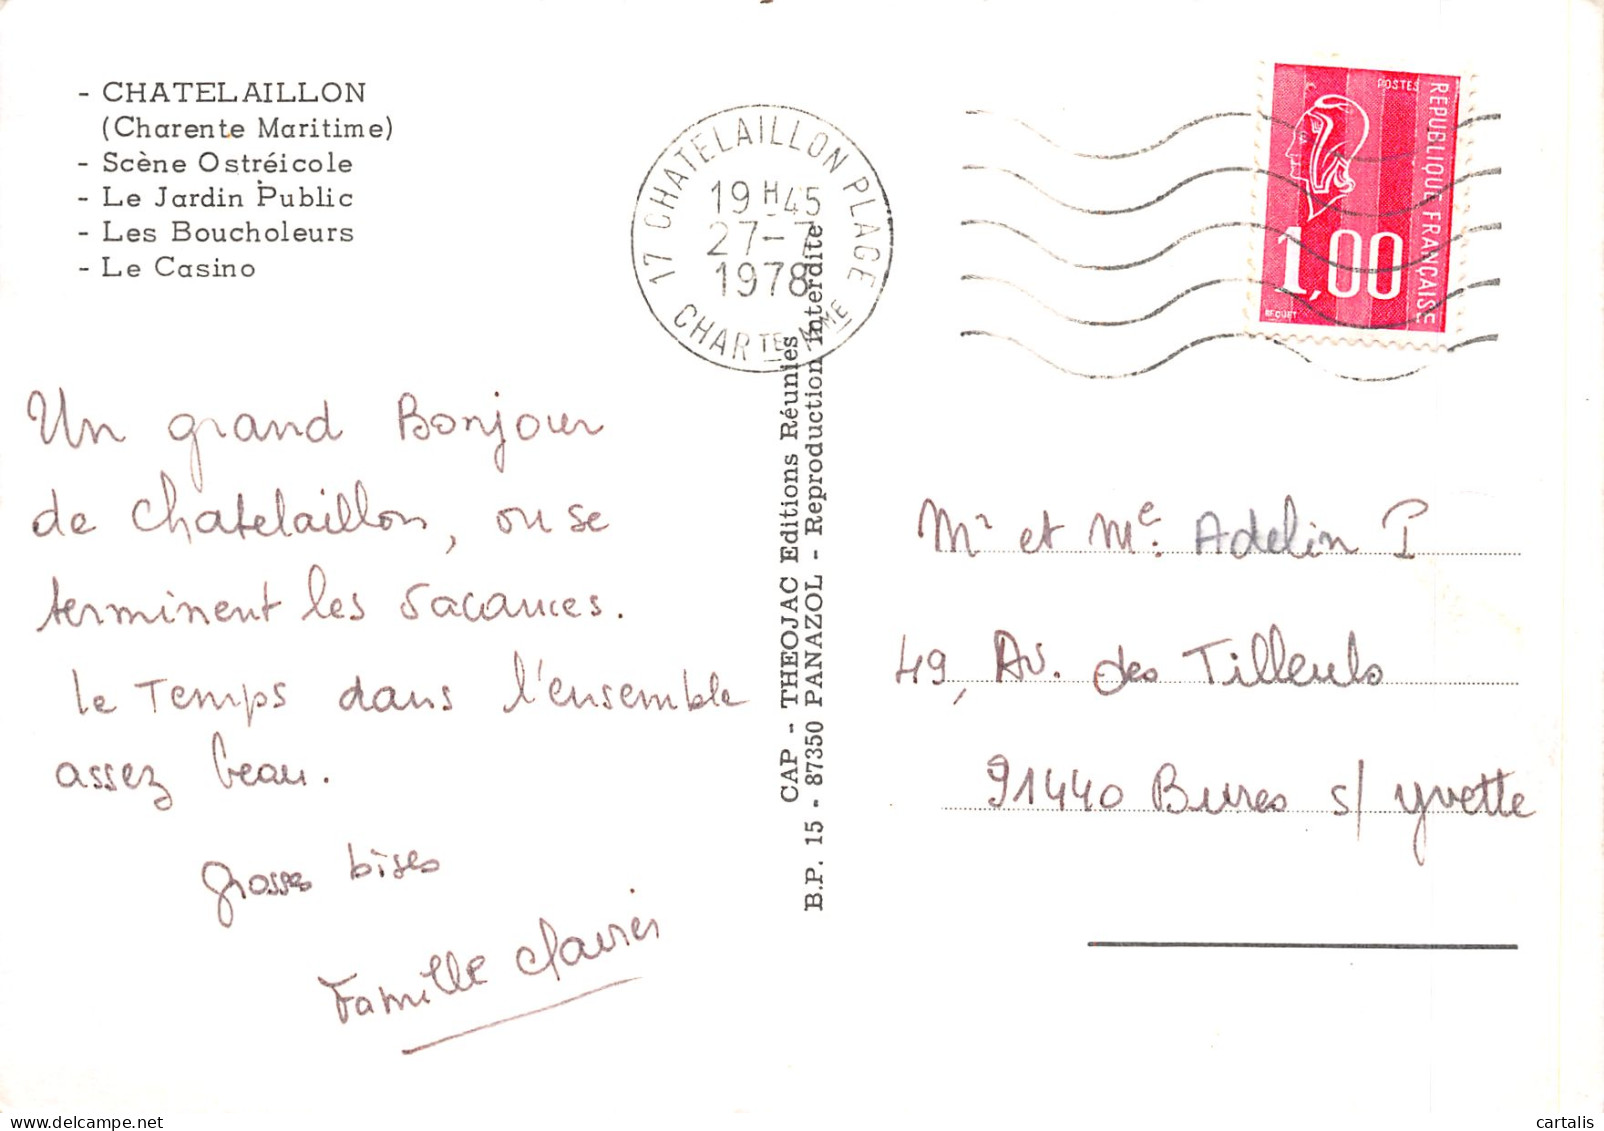 - CHATELAILLON
(Charente Maritime)
- Scène Ostréicole
- Le Jardin Public
- Les Boucholeurs
- Le Casino
17 CHATELAILLON PLAGE
19 H 45
27-7
1978
CHARTE MME
POSTES
REPUBLIQUE FRANÇAISE
1,00
BEQUET
Un grand Bonjour
de Chatelaillon, ou se
terminent les vacances.
Le Temps dans l'ensemble
assez beau.
grosses bises
Famille
CAP - THEOJAC Editions Réunies
B.P. 15 - 87350 PANAZOL - Reproduction Interdite
Mr et Me. Adelin P
49, Av. des Tilleuls
91440 Bures s/ Yvette
cartalis